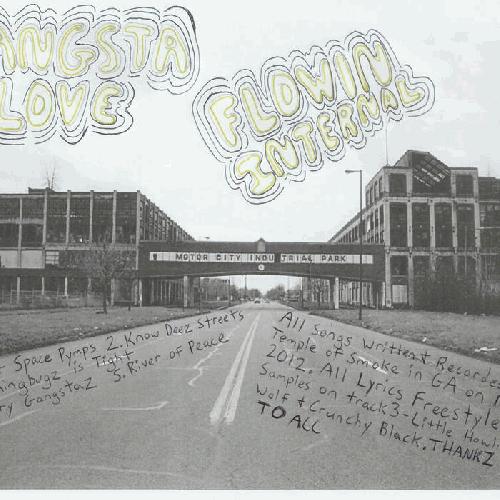 GANGSTA
LOVE
FLOWIN
INTERNAL
MOTOR CITY INDUSTRIAL PARK
Space Pumps 2. Know Deez Streets
is Tight
Gangstaz 5. River of Peace
All Songs Written & Recorde
Temple of Smoke in GA on
2012. All Lyrics Freestyle
Samples on track 3 - Little Howl
Wolf & Crunchy Black. THANKZ
TO ALL